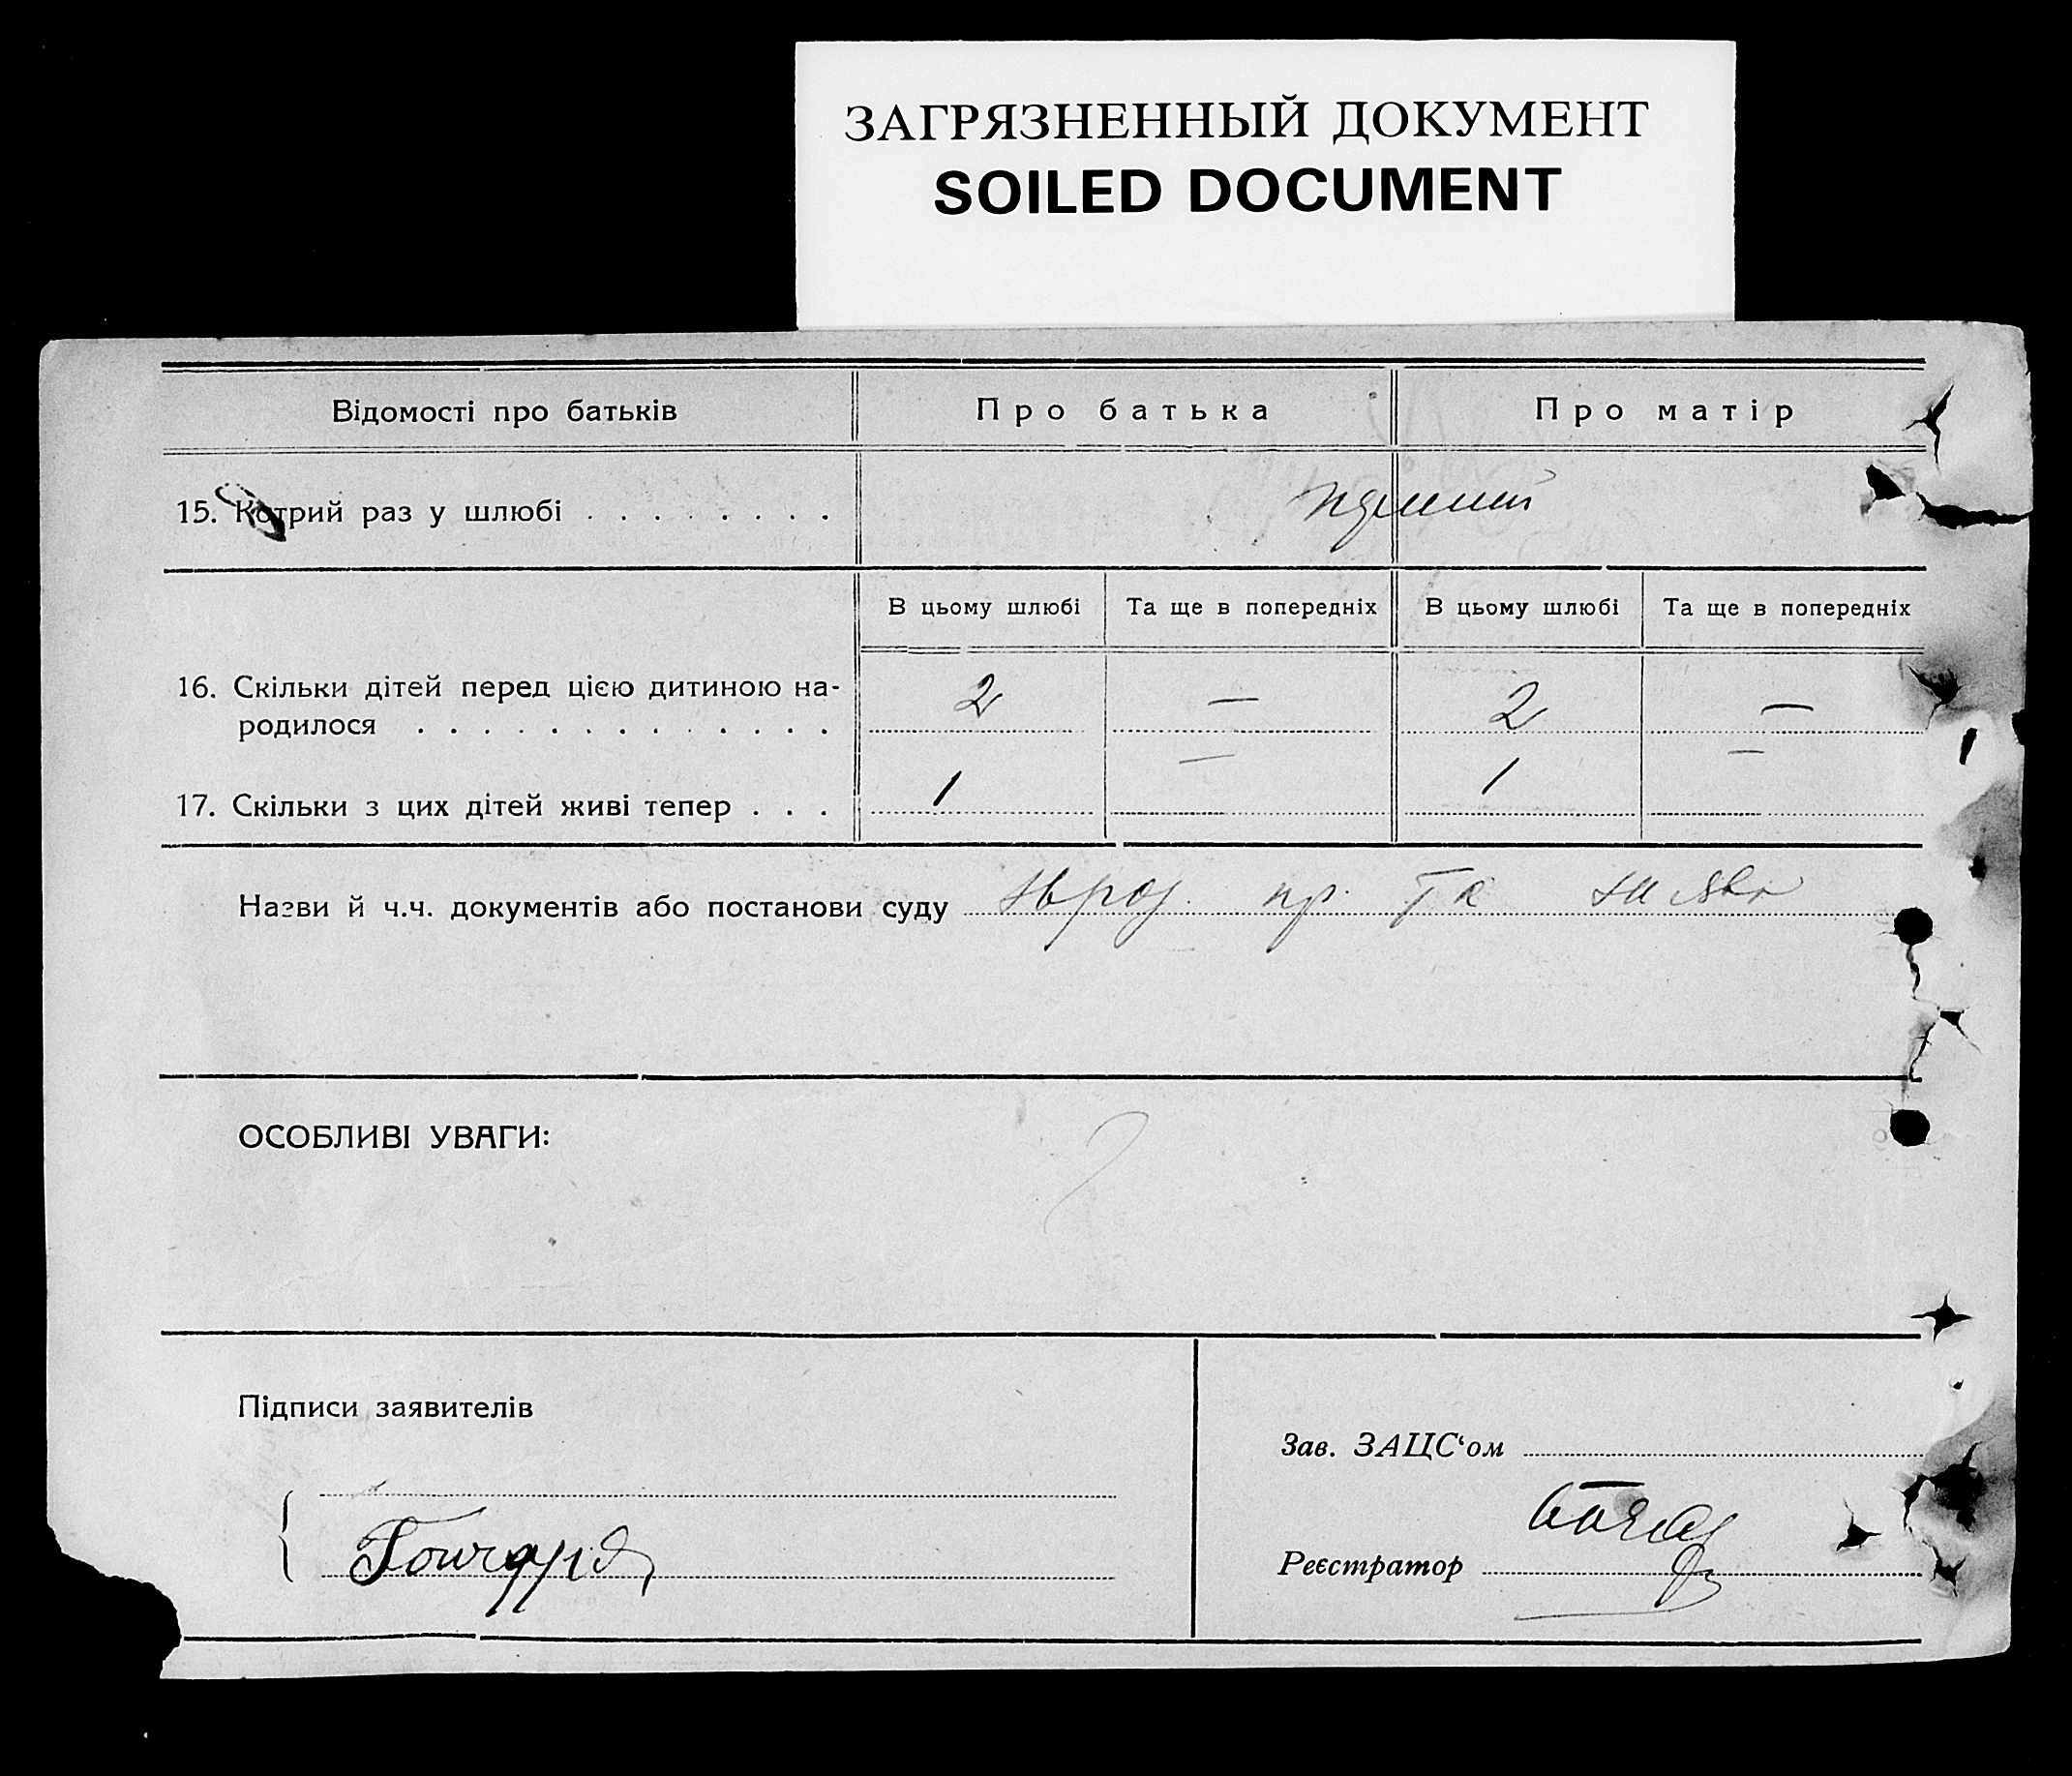 ЗАГРЯЗНЕННЫЙ ДОКУМЕНТ
SOILED DOCUMENT
Відомості про батьків Про батька Про матір
15. Котрий раз у шлюбі . . . . . . . .
В цьому шлюбі Та ще в попередніх В цьому шлюбі Та ще в попередніх
16. Скільки дітей перед цією дитиною на-
родилося . . . . . . . . . . . . . 2 — 2 —
17. Скільки з цих дітей живі тепер . . . 1 — 1 —
Назви й ч.ч. документів або постанови суду пр. та
ОСОБЛИВІ УВАГИ:
Підписи заявителів
Зав. ЗАЦС‘ом
Реєстратор